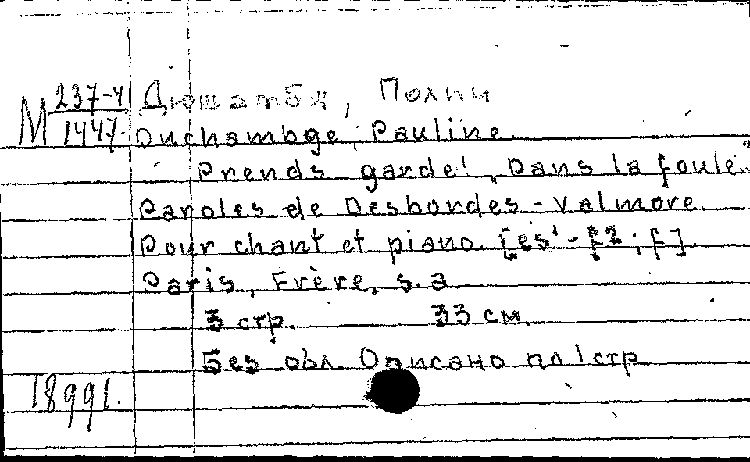 М 237-4/1447.
Дюшамбж, Полин
Duchambge, Pauline.
Prends garde! „Dans la foule"
Paroles de Desbordes-Valmore.
Pour chant et piano. [es¹-f2; f]
Paris, Frère, s.a
3 стр. 33 см.
Без обл. Описано по 1 стр
18991.